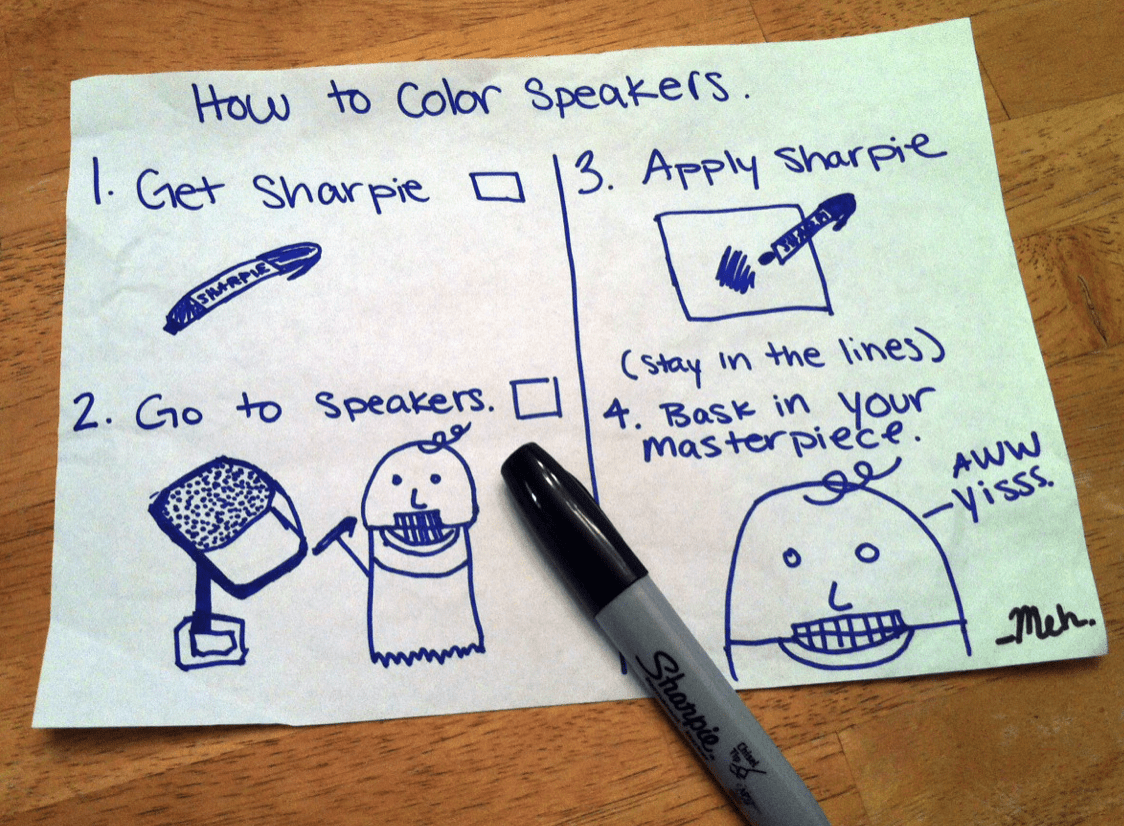 How to Color Speakers.
1. Get Sharpie
SHARPIE
2. Go to Speakers.
3. Apply Sharpie
(Stay in the lines)
4. Bask in your
masterpiece.
AWW
Yisss.
-Meh.
Sharpie.
Chisel
Tip